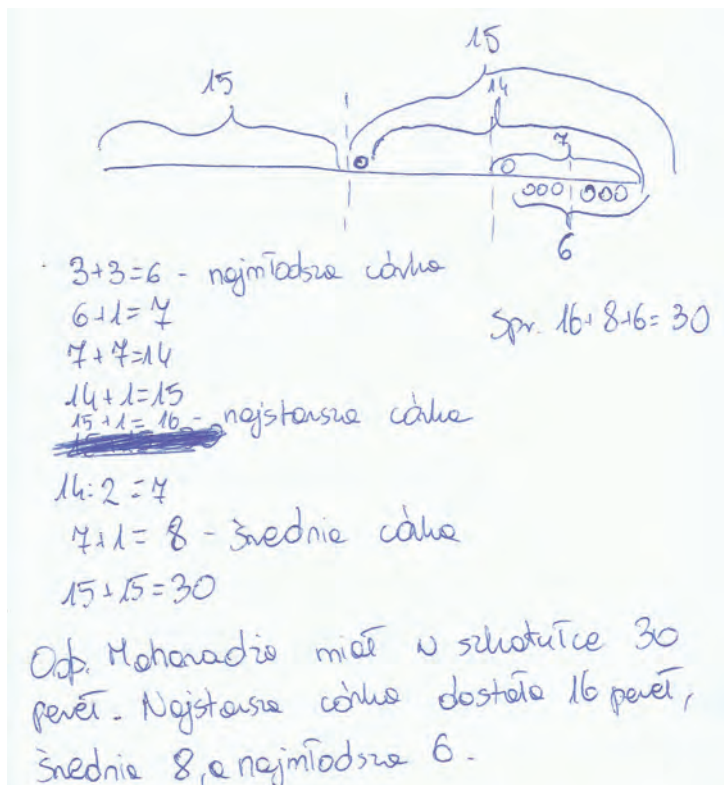 15
15
14
7
6
3+3=6 - najmłodsza córka
6+1=7
7+7=14
Spr. 16+8+6=30
14+1=15
15+1=16 - najstarsza córka
14:2=7
7+1=8 - średnia córka
15+15=30
Odp. Maharadża miał w szkatułce 30
pereł. Najstarsza córka dostała 16 pereł,
średnia 8, a najmłodsza 6.